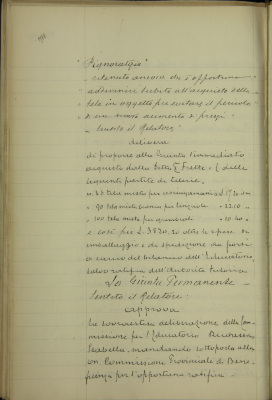 ritenuto ancora che è opportuno
addivenire subito all'acquisto della
tela in oggetto per evitare il pericolo
di un nuovo aumento di prezzi
sentito il Relatore:
delibera
di proporre alla Giunta l'immediato
acquisto dalla Ditta F. delle
seguenti partite di tela:
tela mista per
tela mista bianca per lenzuola
100 tela mista per grembiali
e così per L. 3820.20 oltre le spese di
imballaggio e di spedizione da porsi
a carico del bilancio dell'Educatorio,
salvo ratifica dell'Autorità tutoria.
La Giunta Permanente
Sentito il Relatore:
approva
la sovraestesa deliberazione della Com-
missione per l'Educatorio Duchessa
Isabella, mandando sottoporla alla
on. Commissione Provinciale di Bene-
ficenza per l'opportuna ratifica.